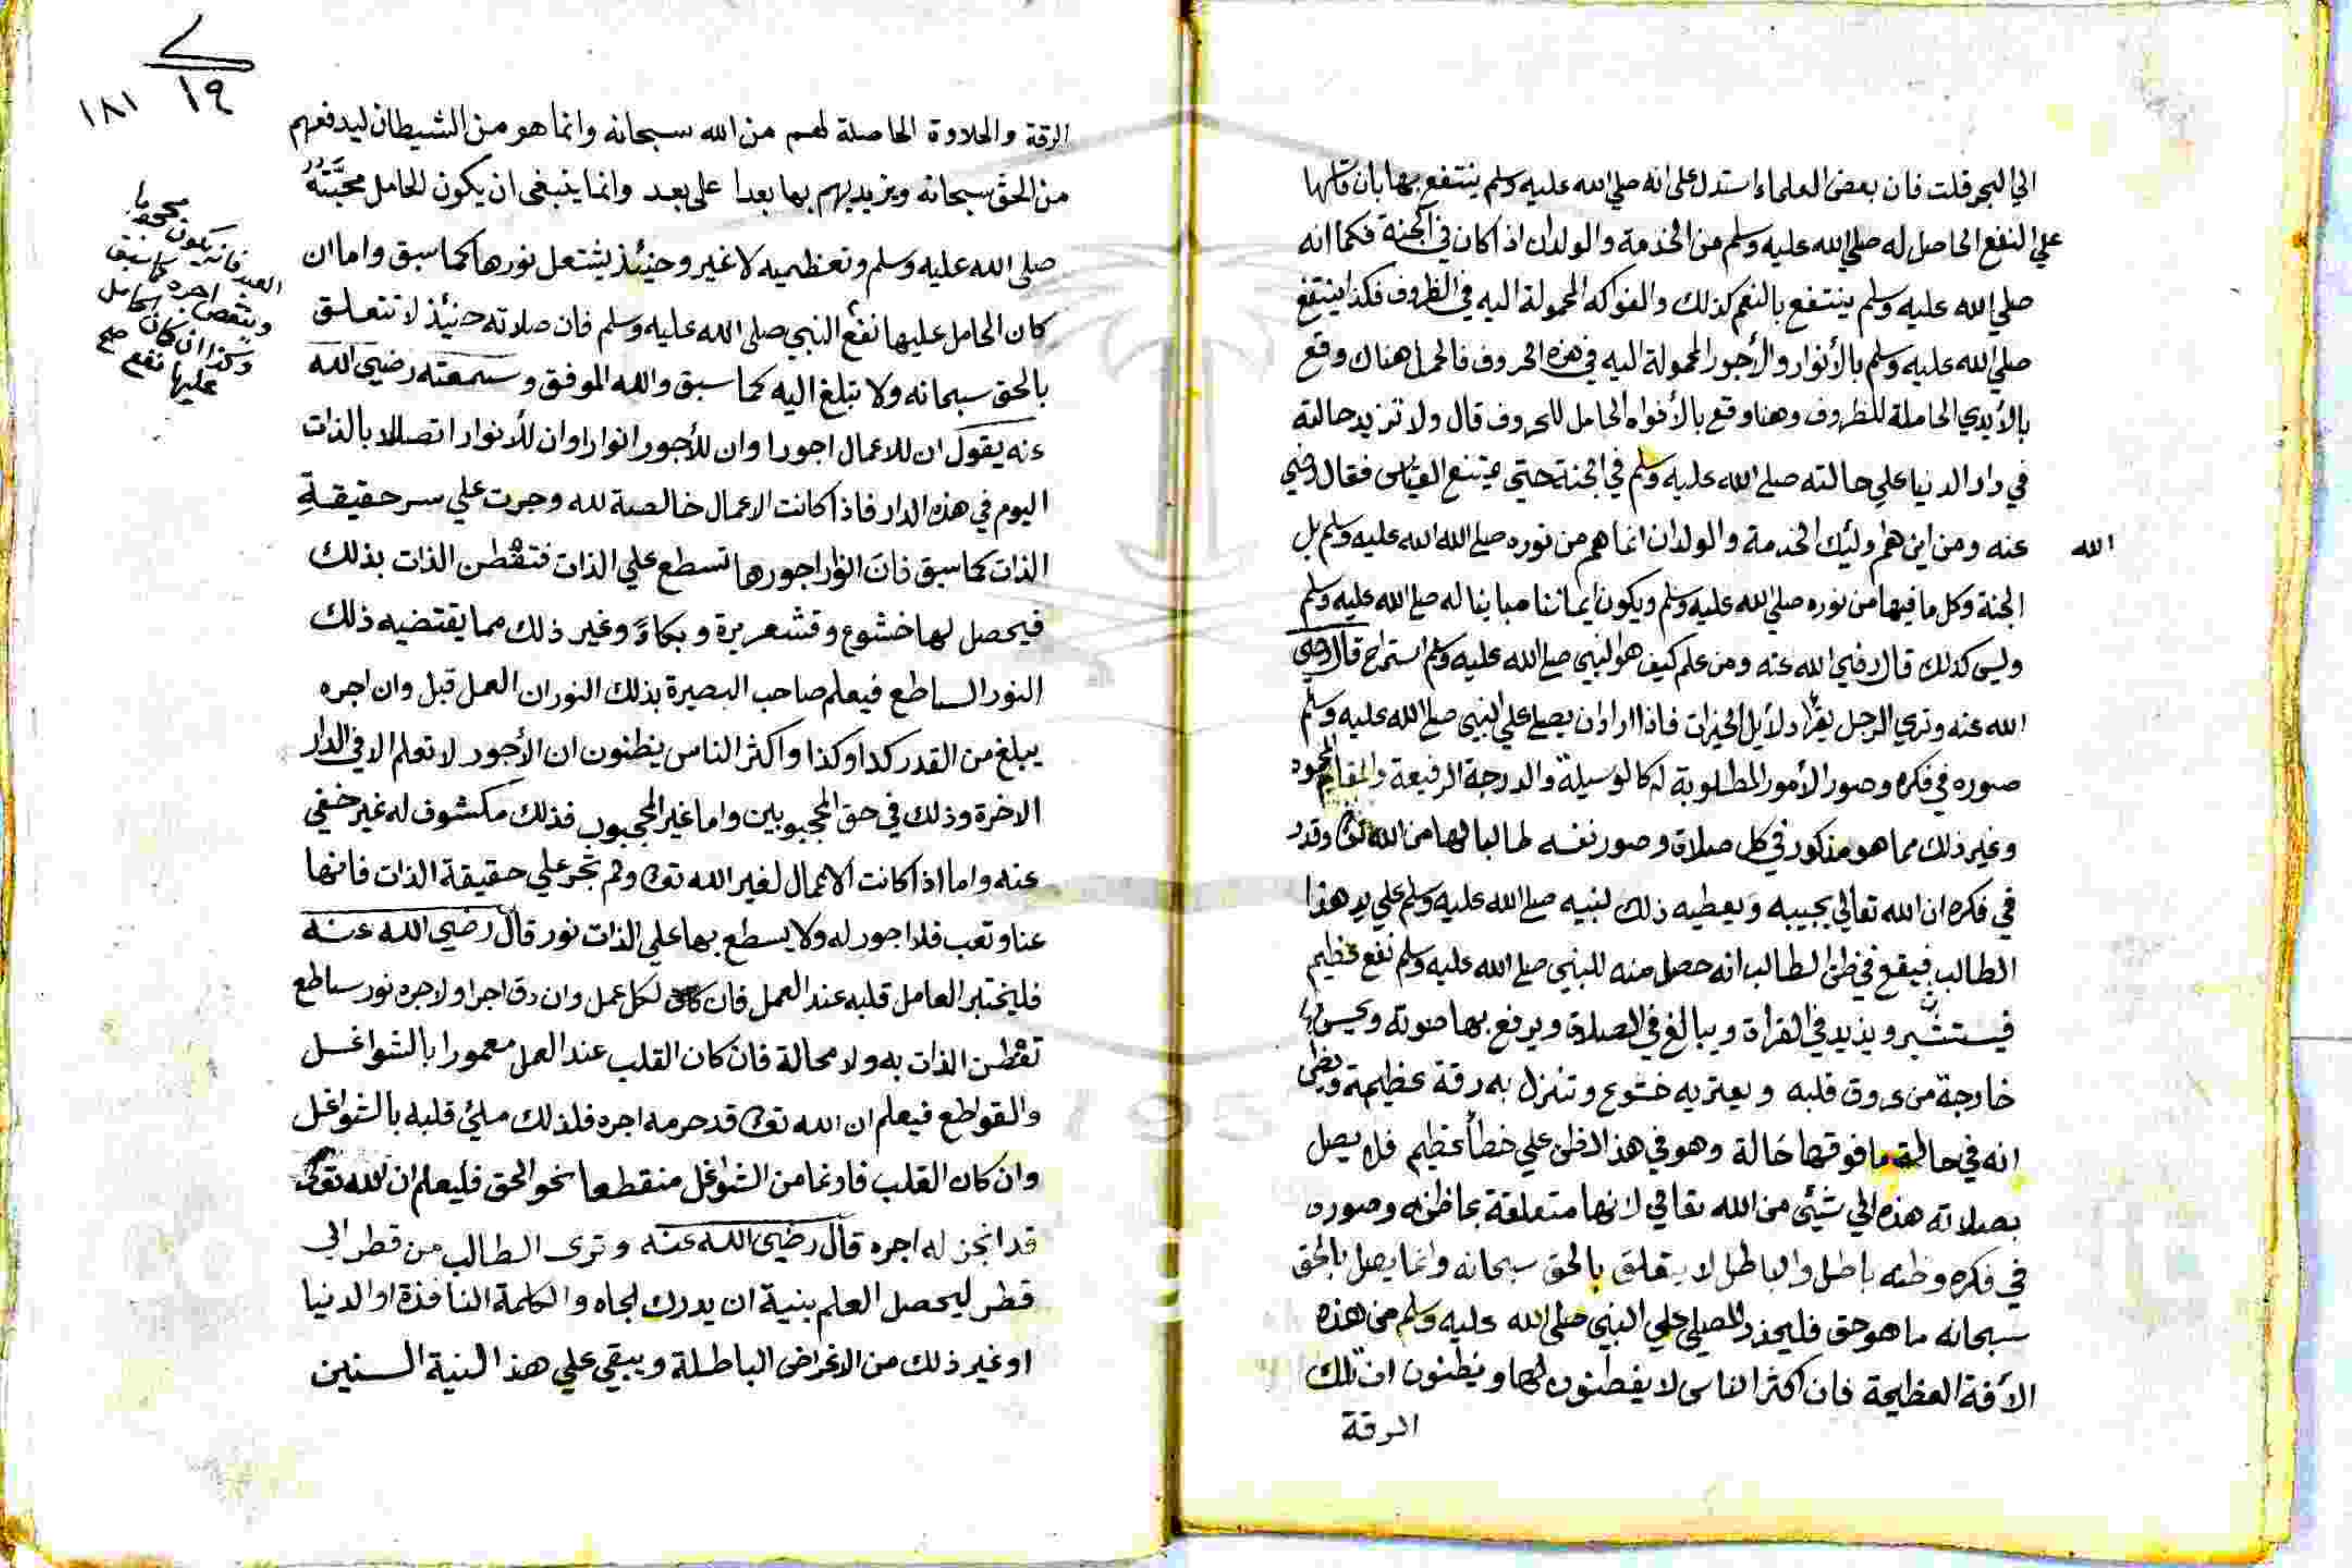 الي البحر قلت فان بعض العلماء استدل على انه صلي الله عليه وسلم ينتفع بها بان قاسها
علي النفع الحاصل له صلي الله عليه وسلم من الخدمة والولدان اذا كان في الجنة فكما انه
صلي الله عليه وسلم ينتفع بالنعم كذلك والفواكه المحمولة اليه في الظروف فكذا ينتفع
صلي الله عليه وسلم بالأنوار والأجور المحمولة اليه في هذه الحروف فالحمل هناك وقع
بالأيدي الحاملة للظروف وهنا وقع بالأفواه الحامل للحروف قال ولا تزيد حالته
في دار الدنيا علي حالته صلي الله عليه وسلم في الجنة حتي يمتنع القياس فقال رضي
الله
عنه ومن اين هم اولئك الخدمة والولدان انما هم من نوره صلي الله الله عليه وسلم بل
الجنة وكل ما فيها من نوره صلي الله عليه وسلم ويكون ايماننا مباينا له صلي الله عليه وسلم
وليس كذلك قال رضي الله عنه ومن علم كيف هو النبي صلي الله عليه وسلم استراح قال رضي
الله عنه وتري الرجل يقرأ دلائل الخيرات فاذا اراد ان يصلي علي النبي صلي الله عليه وسلم
صوره في فكره وصور الأمور المطلوبة له كالوسيلة والدرجة الرفيعة والمقام المحمود
وغير ذلك مما هو مذكور في كل صلاة وصور نفسه طالبا لها من الله تعالى وقدر
في فكره ان الله تعالي يجيبه ويعطيه ذلك لنبيه صلي الله عليه وسلم علي يد هذا
الطالب فيقع في ظن الطالب انه حصل منه للنبي صلي الله عليه وسلم نفع عظيم
فيستبشر ويزيد في القراة ويبالغ في الصلاة ويرفع بها صوته ويحس بها
خارجة من عروق قلبه ويعتريه خشوع وتنزل به رقة عظيمة ويظن
انه في حالة ما فوقها حالة وهو في هذا الظن علي خطأ عظيم فلا يصل
بصلاته هذه الي شيئ من الله تعالي لانها متعلقة بما ظنه وصوره
في فكره وظنه باطل والباطل لا يتعلق بالحق سبحانه وانما يصل بالحق
سبحانه ما هو حق فليحذر المصلي علي النبي صلي الله عليه وسلم من هذه
الأفة العظيمة فان اكثر الناس لا يفطنون لها ويظنون ان تلك
الرقة
١٩
١٨١
الرقة والحلاوة الحاصلة لهم من الله سبحانه وانما هو من الشيطان ليدفعهم
من الحق سبحانه ويزيد بهم بها بعدا على بعد وانما ينبغي ان يكون الحامل محبته
صلي الله عليه وسلم وتعظيمه لا غير وحينئذ يشتعل نورها كما سبق واما ان
كان الحامل عليها نفع النبي صلي الله عليه وسلم فان صلاته حنيئذ لا تتعلق
بالحق سبحانه ولا تبلغ اليه كما سبق والله الموفق وسمعته رضي الله
عنه يقول ان للاعمال اجورا وان للأجور انوارا وان للأنوار اتصالا بالذات
اليوم في هذه الدار فاذا كانت الاعمال خالصة لله وجرت علي سر حقيقة
الذات كما سبق فان انوار اجورها تسطع علي الذات فتفطن الذات بذلك
فيحصل لها خشوع وقشعريرة وبكاء وغير ذلك مما يقتضيه ذلك
النور الساطع فيعلم صاحب البصيرة بذلك النور ان العمل قبل وان اجره
يبلغ من القدر كذا وكذا واكثر الناس يظنون ان الأجور لا تعلم الا في الدار
الاخرة وذلك في حق المحجوبين واما غير المحجوب فذلك مكشوف له غير خفي
عنه واما اذا كانت الاعمال لغير الله تعالى ولم تجر علي حقيقة الذات فانها
عنا وتعب فلا اجور له ولا يسطع بها علي الذات نور قال رضي الله عنه
فليختبر العامل قلبه عند العمل فان لكل عمل وان دق اجرا ولاجره نور ساطع
تفطن الذات به ولا محالة فان كان القلب عند العمل معمورا بالشواغل
والقواطع فيعلم ان الله تعالى قد حرمه اجره فلذلك ملئ قلبه بالشواغل
وان كان القلب فارغا من الشواغل منقطعا نحو الحق فليعلم ان الله تعالى
قد انجز له اجره قال رضي الله عنه وترى الطالب من قطر الى
قطر ليحصل العلم بنية ان يدرك الجاه والكلمة النافذة او الدنيا
او غير ذلك من الاغراض الباطلة ويبقي علي هذا النية السنين
العبد فانه يكون محجوبا
وينقص اجره كما سبق
وكذا ان كان الحامل
عليها نفع صح